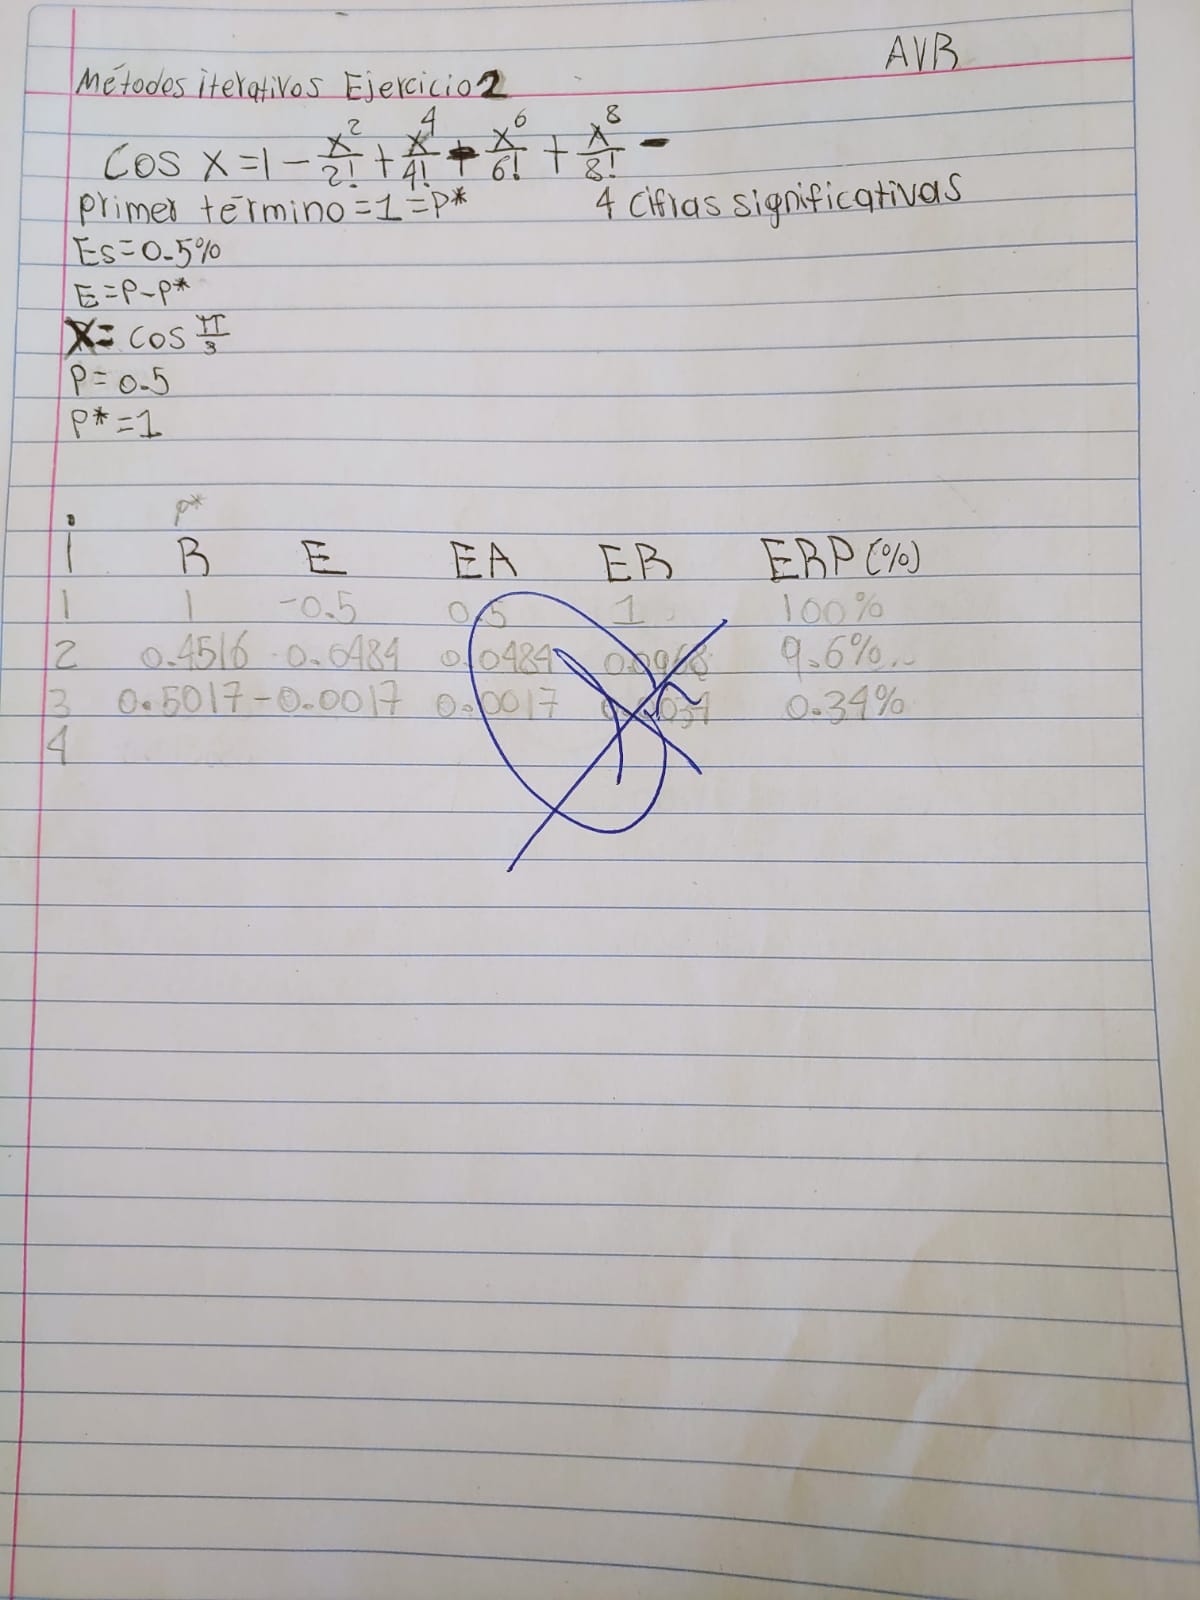 AVR
Métodos iterativos Ejercicio 2
cos x = 1 - x²/2! + x⁴/4! - x⁶/6! + x⁸/8! -
primer término = 1 = P* 4 cifras significativas
Es = 0.5%
E = P - P*
X = cos π/3
P = 0.5
P* = 1
P*
i R E EA ER ERP (%)
1 1 -0.5 0.5 1 100%
2 0.4516 0.0484 0.0484 0.0968 9.6%..
3 0.5017 -0.0017 0.0017 0.34%
4